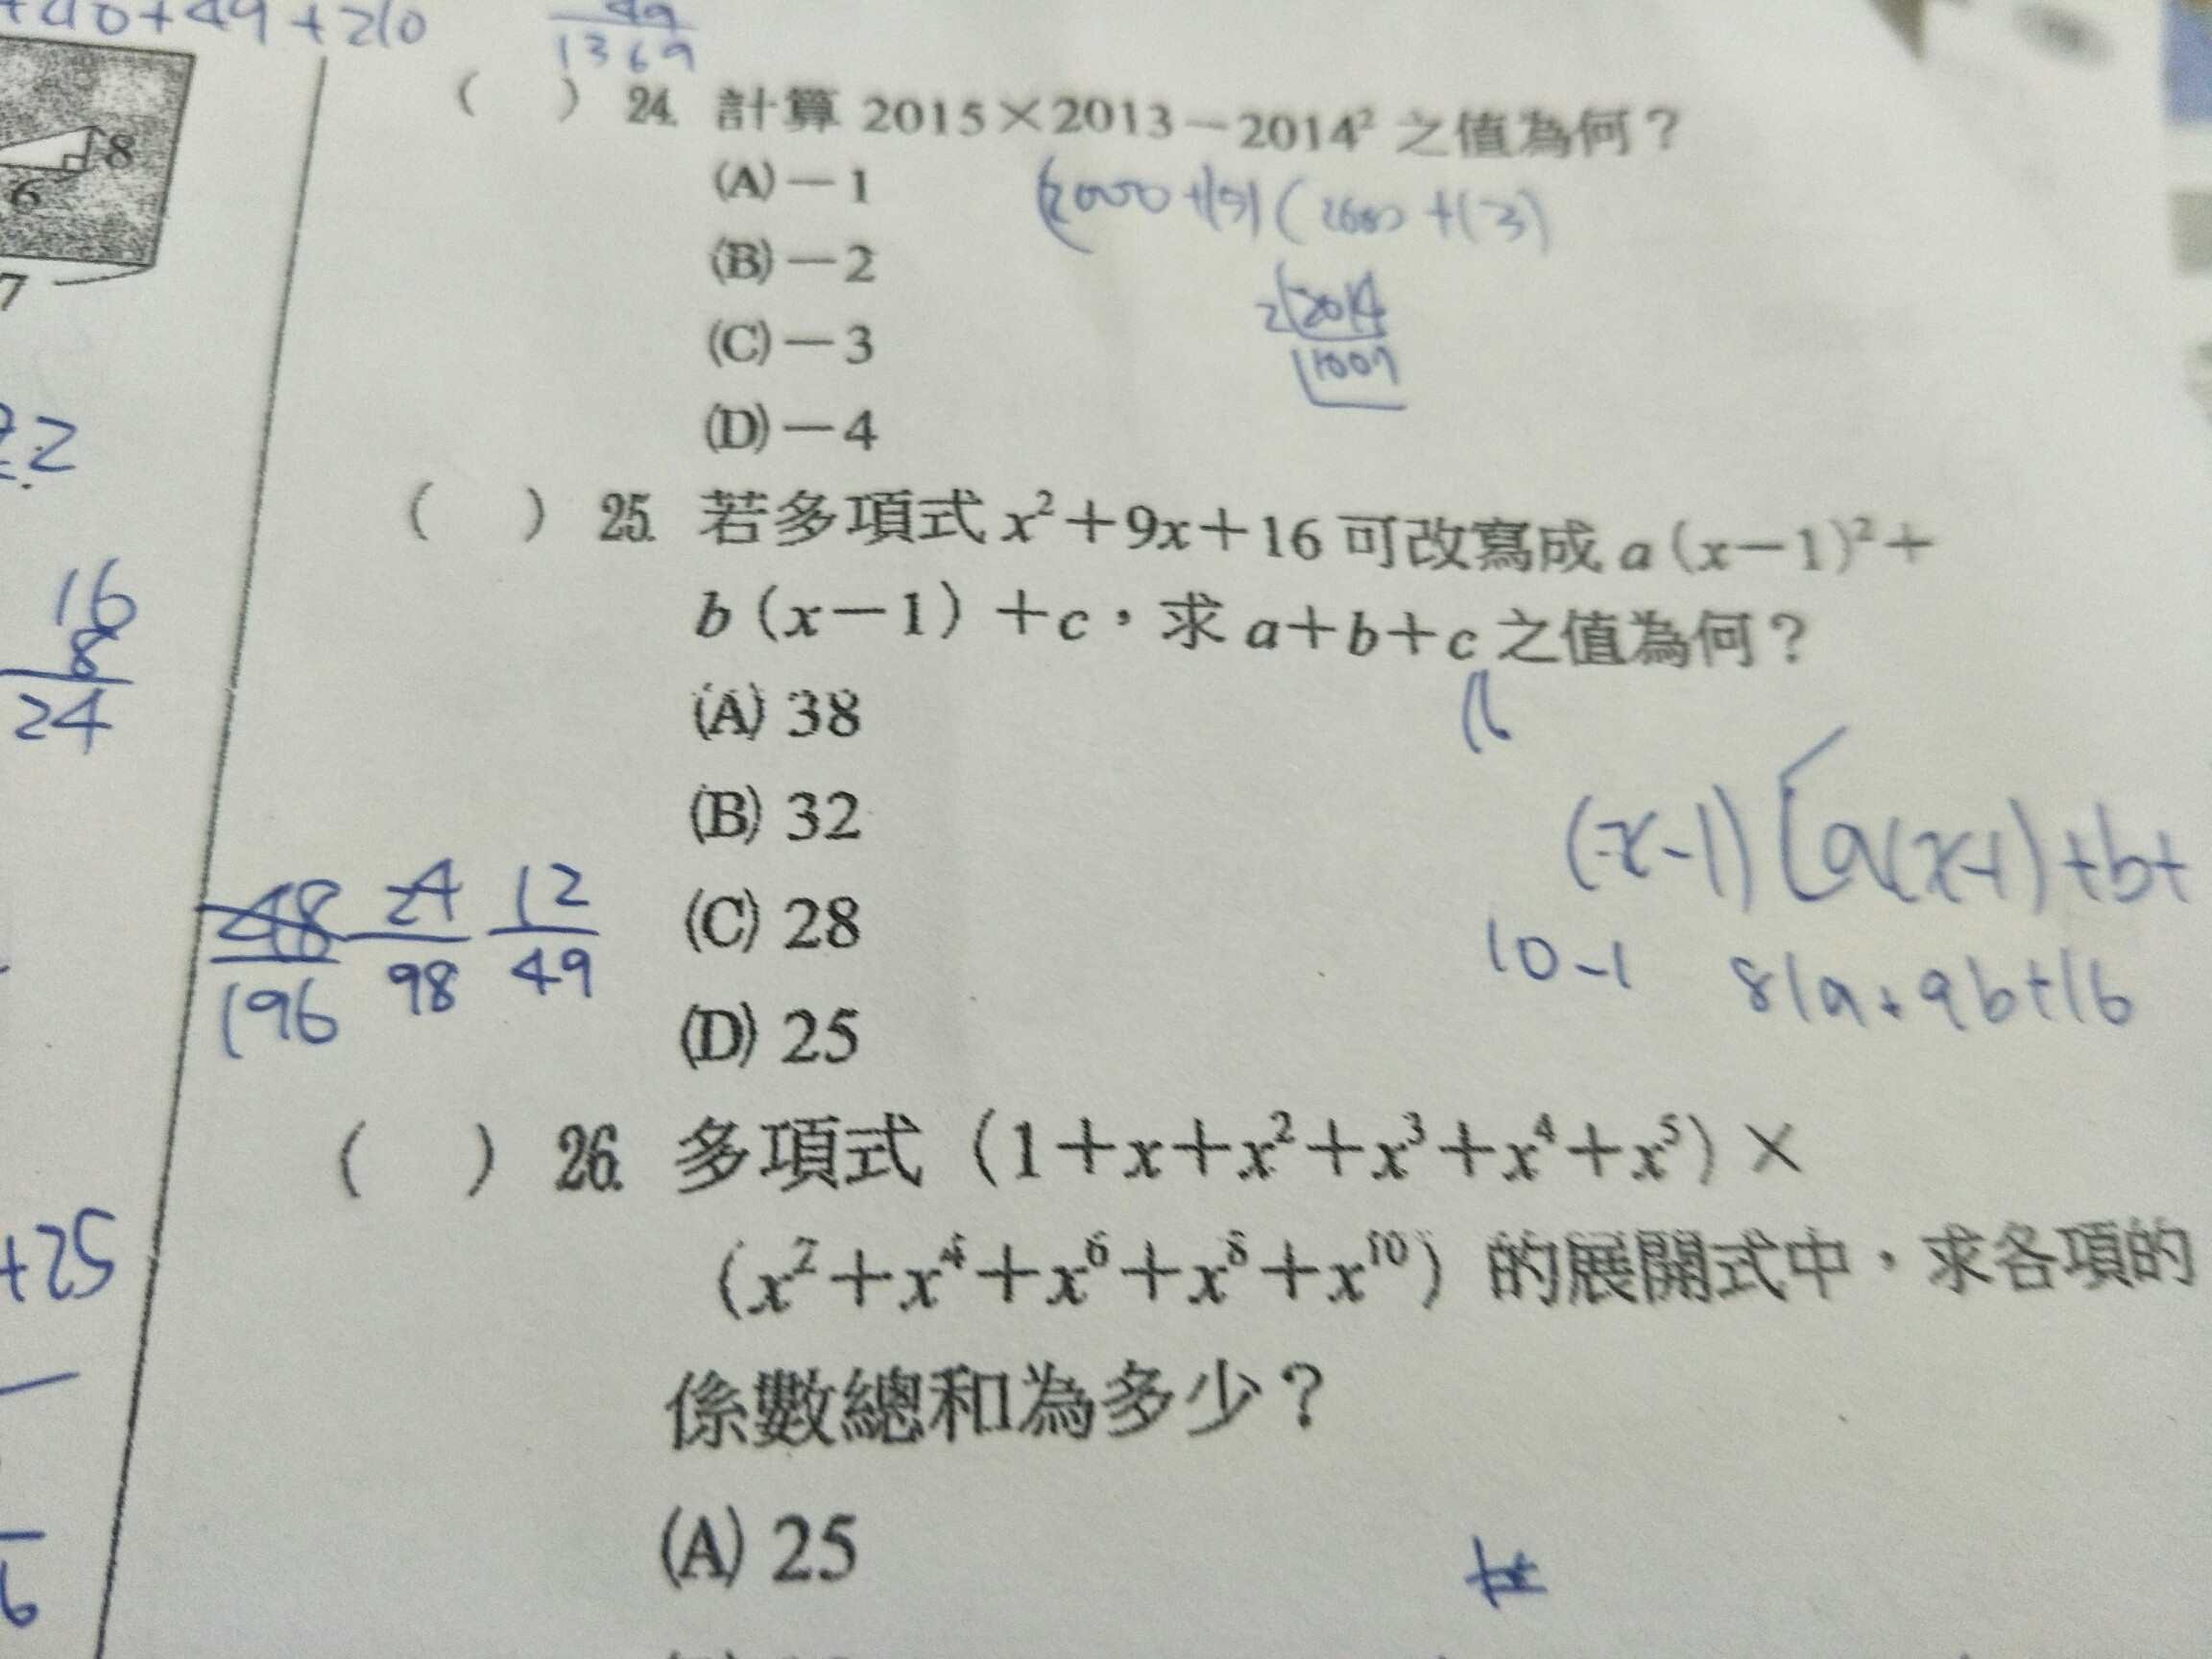 +40+49+210
49
1369
8
6
7
22
16
8
24
48 24 12
196 98 49
+25
6
( ) 24. 計算 2015×2013-2014² 之值為何?
(A)-1
(2000+15)(2000+13)
(B)-2
2 2014
1007
(C)-3
(D)-4
( ) 25. 若多項式 x²+9x+16 可改寫成 a(x-1)²+
b(x-1)+c,求 a+b+c 之值為何?
16
(A) 38
(B) 32
(x-1)[a(x-1)+b+
(C) 28
10-1 81a+9b+16
(D) 25
( ) 26. 多項式 (1+x+x²+x³+x⁴+x⁵)×
(x²+x⁴+x⁶+x⁸+x¹⁰) 的展開式中,求各項的
係數總和為多少?
(A) 25